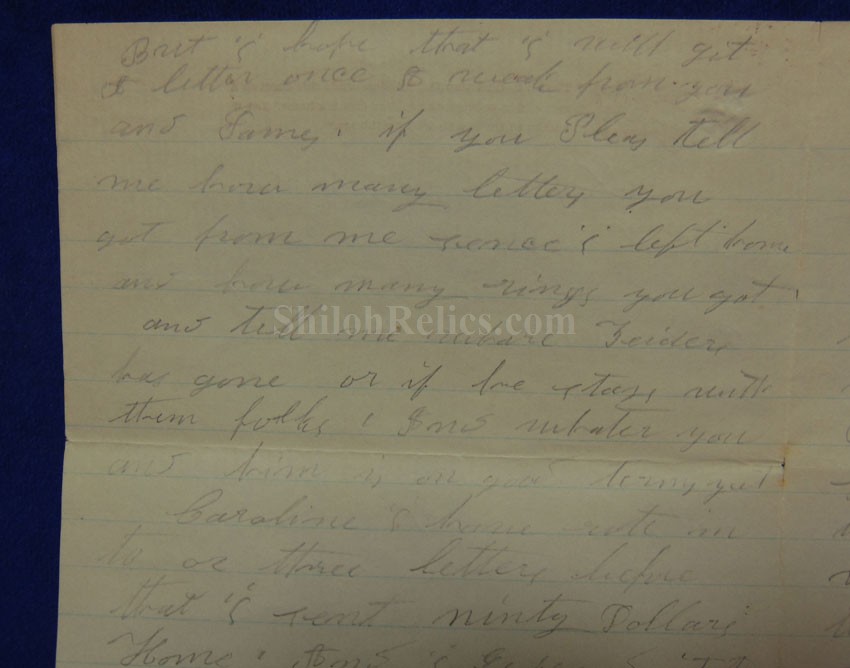 But i hope that i will git
a letter once a weak from you
and James, if you Pleas tell
me how many letters you
got from me sence i left home
and how many rings you got,
and tell me whare Zeiders
has gone or if he stays with
them folks, And whater you
and him is on good terms yet
Caroline i have rote in
to or three letters before
that i sent ninty Dollars
Home, And i
ShilohRelics.com